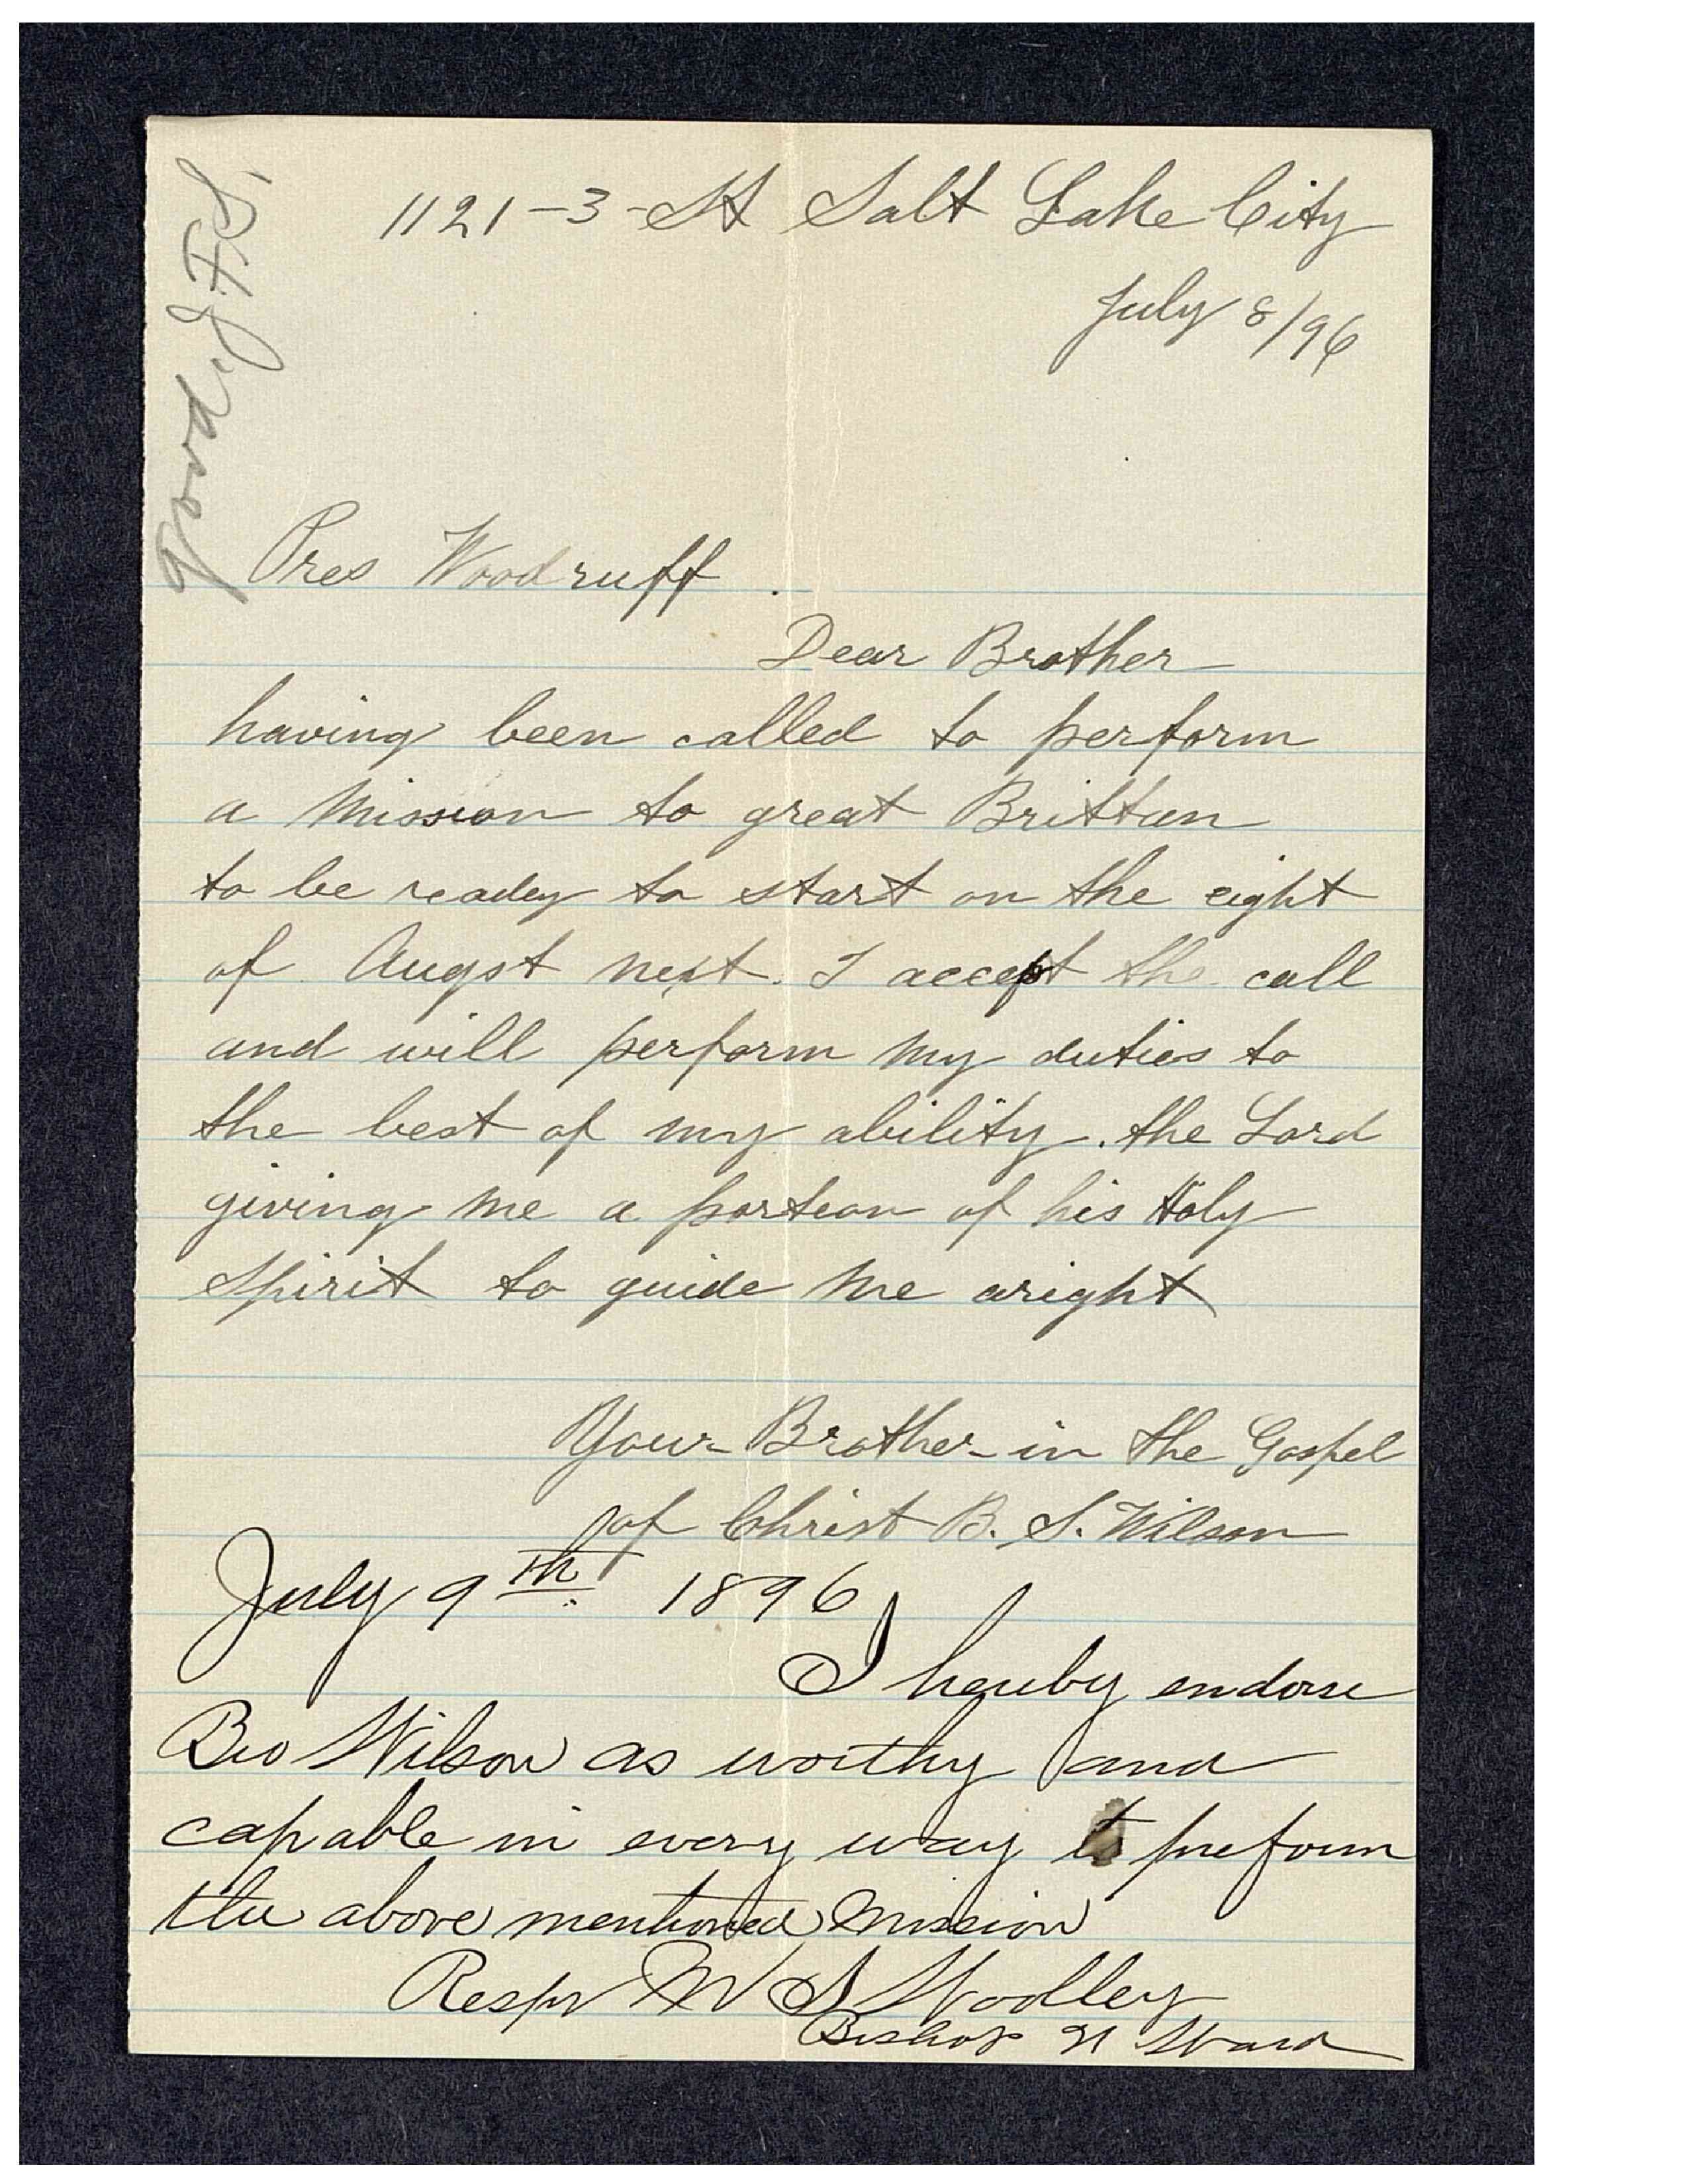 good J.F.S.
1121-3-St Salt Lake City
July 8/96
Pres Woodruff.
Dear Brother
having been called to perform
a Mission to great Brittan
to be readey to start on the eight
of Augst next. I accept the call
and will perform my duties to
the best of my ability. the Lord
giving me a portion of his Holy
spirit to guide me aright
Your Brother in the Gospel
of Christ B. S. Wilson
July 9th. 1896
I hereby endorse
Bro Wilson as worthy and
capable in every way to preform
the above mentioned Mission
Respr M S Woolley
Bishop 21 Ward